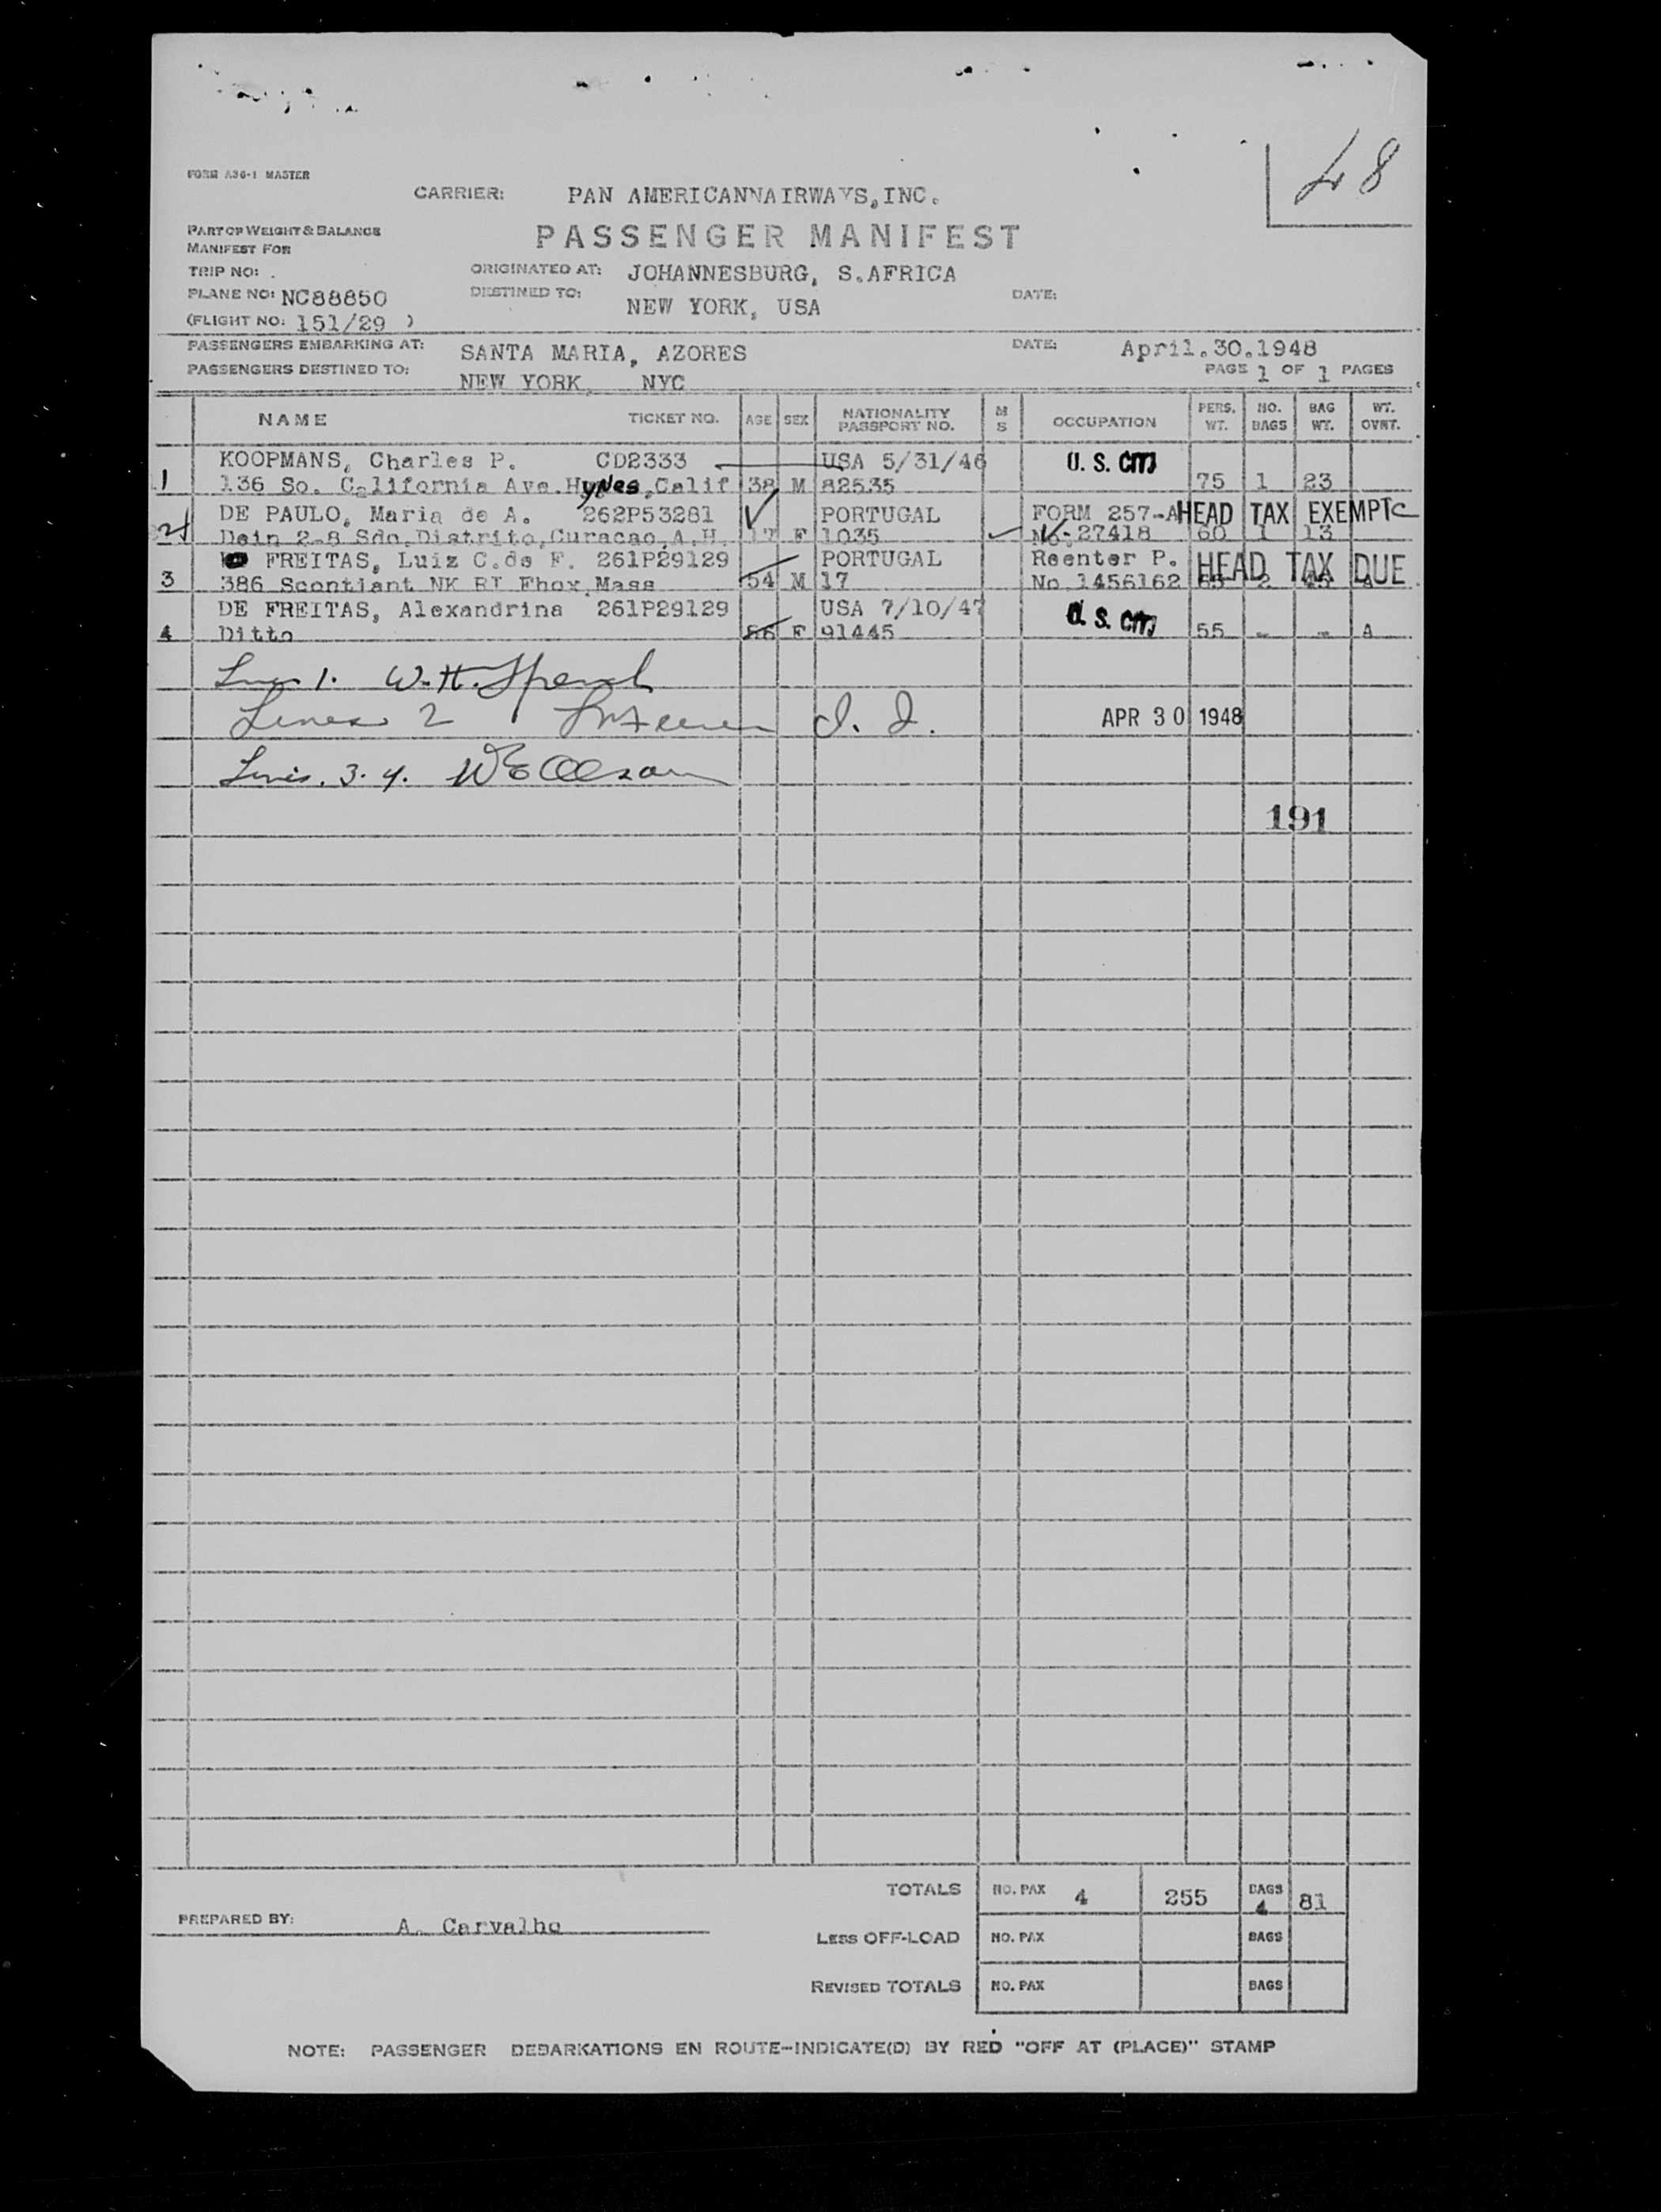 48
FORM A36-1 MASTER
CARRIER: PAN AMERICANNAIRWAYS, INC.
PART OF WEIGHT & BALANCE
MANIFEST FOR
PASSENGER MANIFEST
TRIP NO: .
ORIGINATED AT: JOHANNESBURG, S.AFRICA
PLANE NO: NC88850
DESTINED TO: NEW YORK, USA
DATE:
(FLIGHT NO: 151/29 )
PASSENGERS EMBARKING AT: SANTA MARIA, AZORES
DATE: April.30.1948
PASSENGERS DESTINED TO: NEW YORK, NYC
PAGE 1 OF 1 PAGES
NAME TICKET NO. AGE SEX NATIONALITY PASSPORT NO. M S OCCUPATION PERS. WT. NO. BAGS BAG WT. WT. OVRT.
KOOPMANS, Charles P. CD2333 USA 5/31/46 U.S. Cm
1 136 So. California Ave.Hynes,Calif 38 M 82535 75 1 23
DE PAULO, Maria de A. 262P53281 PORTUGAL FORM 257-A HEAD TAX EXEMPT C
2 Dein 2-8 Sdo.Distrito,Curacao,A.H. 17 F 1035 No. 27418 60 1 13
FREITAS, Luiz C.de F. 261P29129 PORTUGAL Reenter P. HEAD TAX DUE
3 386 Scontiant NK RI Fhox,Mass 54 M 17 No 1456162 65 2 45 A
DE FREITAS, Alexandrina 261P29129 USA 7/10/47 U.S. Cm
4 Ditto F 91445 55 - - A
1. W.H.
Lines 2 I. I. APR 30 1948
3. 4. WE Olson
191
TOTALS NO. PAX 4 255 BAGS 4 81
PREPARED BY: A. Carvalho
LESS OFF-LOAD NO. PAX BAGS
REVISED TOTALS NO. PAX BAGS
NOTE: PASSENGER DEBARKATIONS EN ROUTE-INDICATE(D) BY RED "OFF AT (PLACE)" STAMP